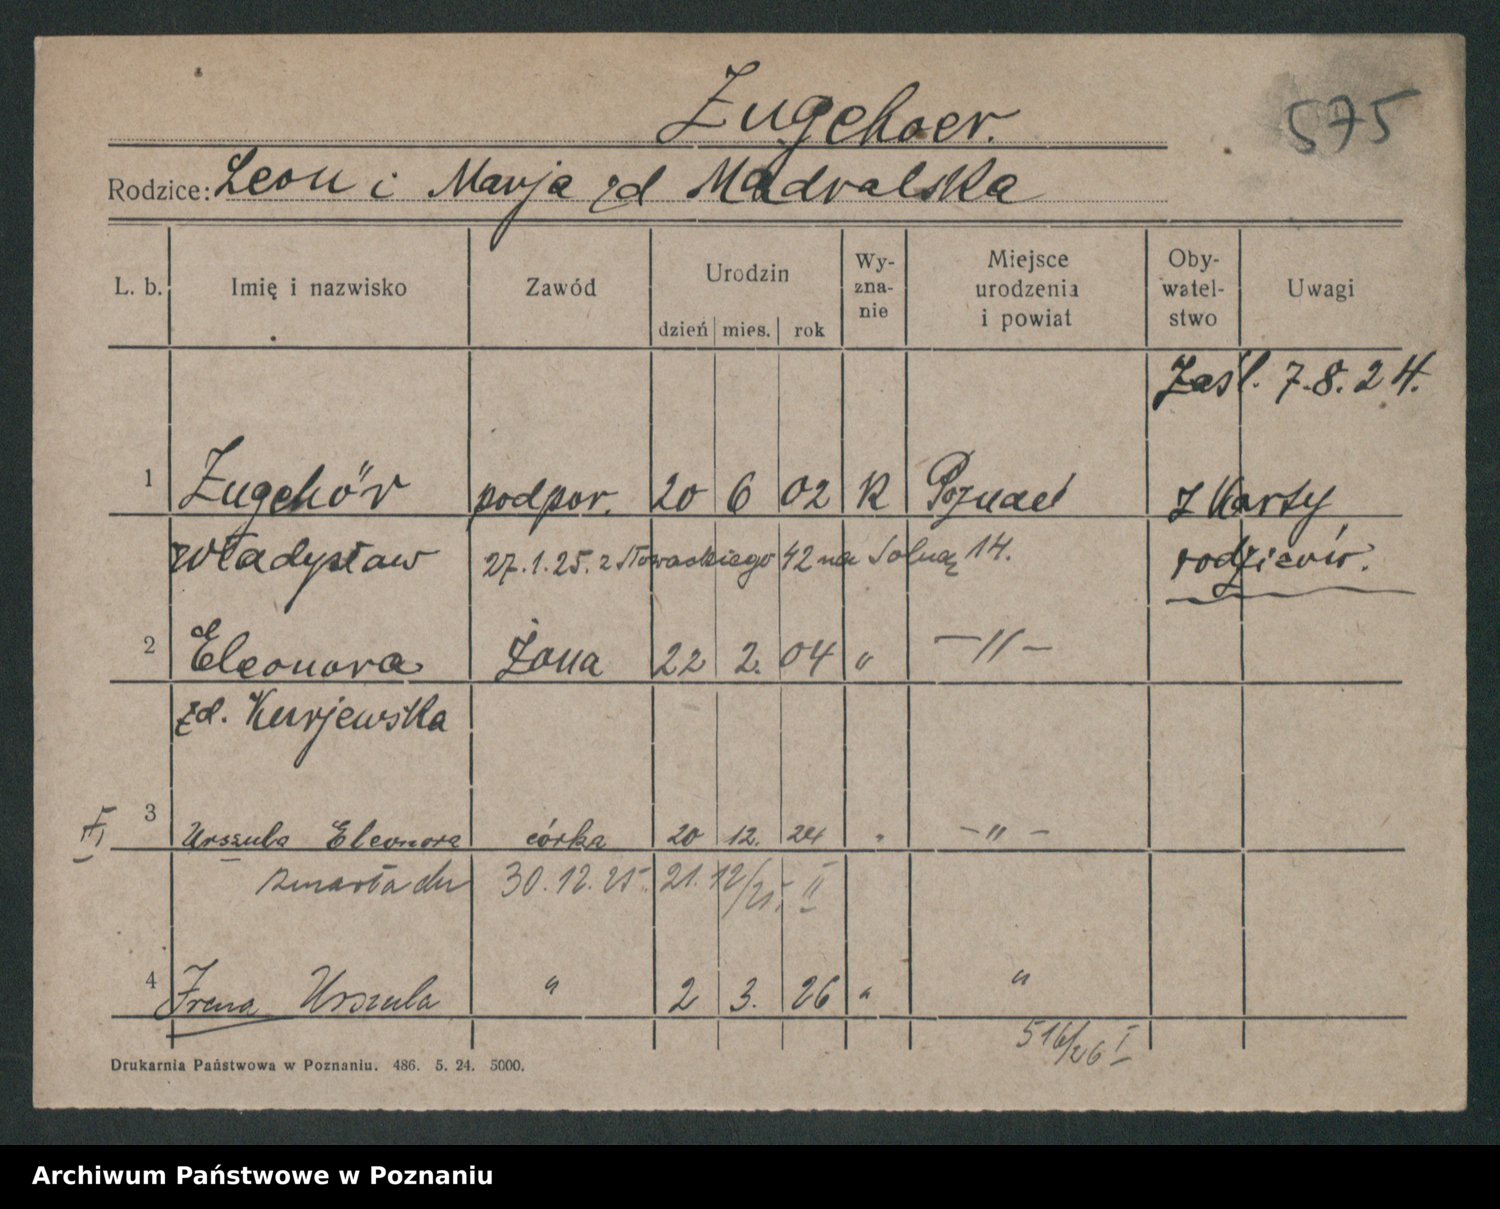 Zugehoer.
575
Rodzice: Leon i Marja zd Mądralska
L. b. Imię i nazwisko Zawód Urodzin dzień mies. rok Wy-zna-nie Miejsce urodzenia i powiat Oby-watel-stwo Uwagi
Zaśl. 7.8.24.
1 Zugehör podpor. 20 6 02 K Poznań z Karty
Władysław 27.1.25. z Słowackiego 42 na Solną 14. rodziców.
2 Eleonora żona 22 2. 04 " —"—
zd. Kurjewska
3 Urszula Eleonora córka 20 12. 24 " —"—
zmarła dn 30.12.25. 21.12/25. II
4 Irena Urszula " 2 3. 26 " "
516/26 I
Drukarnia Państwowa w Poznaniu. 486. 5. 24. 5000.
Archiwum Państwowe w Poznaniu